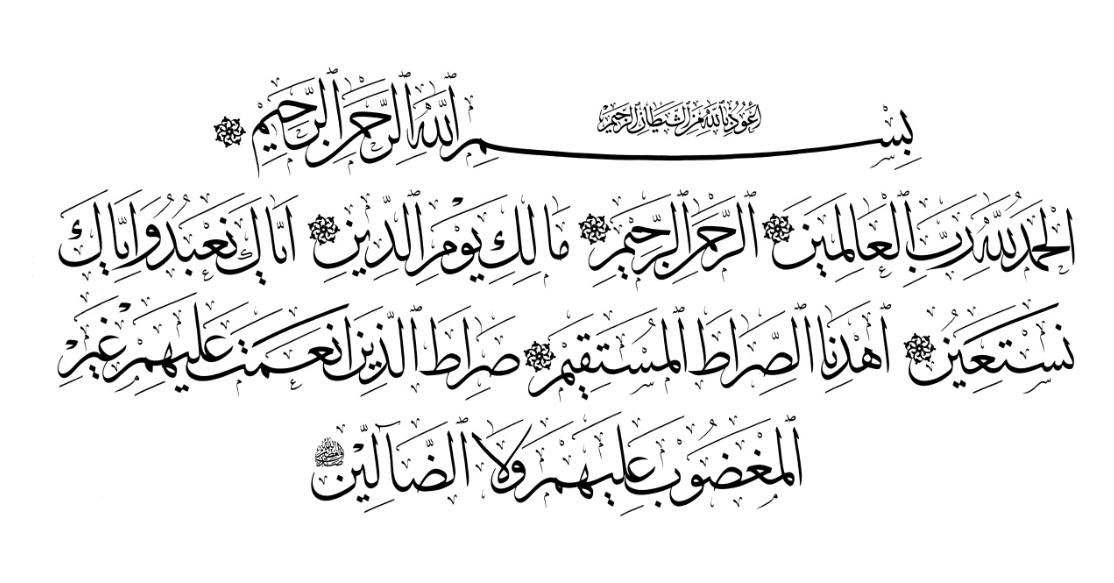 أعوذ بالله من الشيطان الرجيم
بسم الله الرحمن الرحيم
الحمد لله رب العالمين الرحمن الرحيم مالك يوم الدين اياك نعبد واياك
نستعين اهدنا الصراط المستقيم صراط الذين انعمت عليهم غير
المغضوب عليهم ولا الضآلين